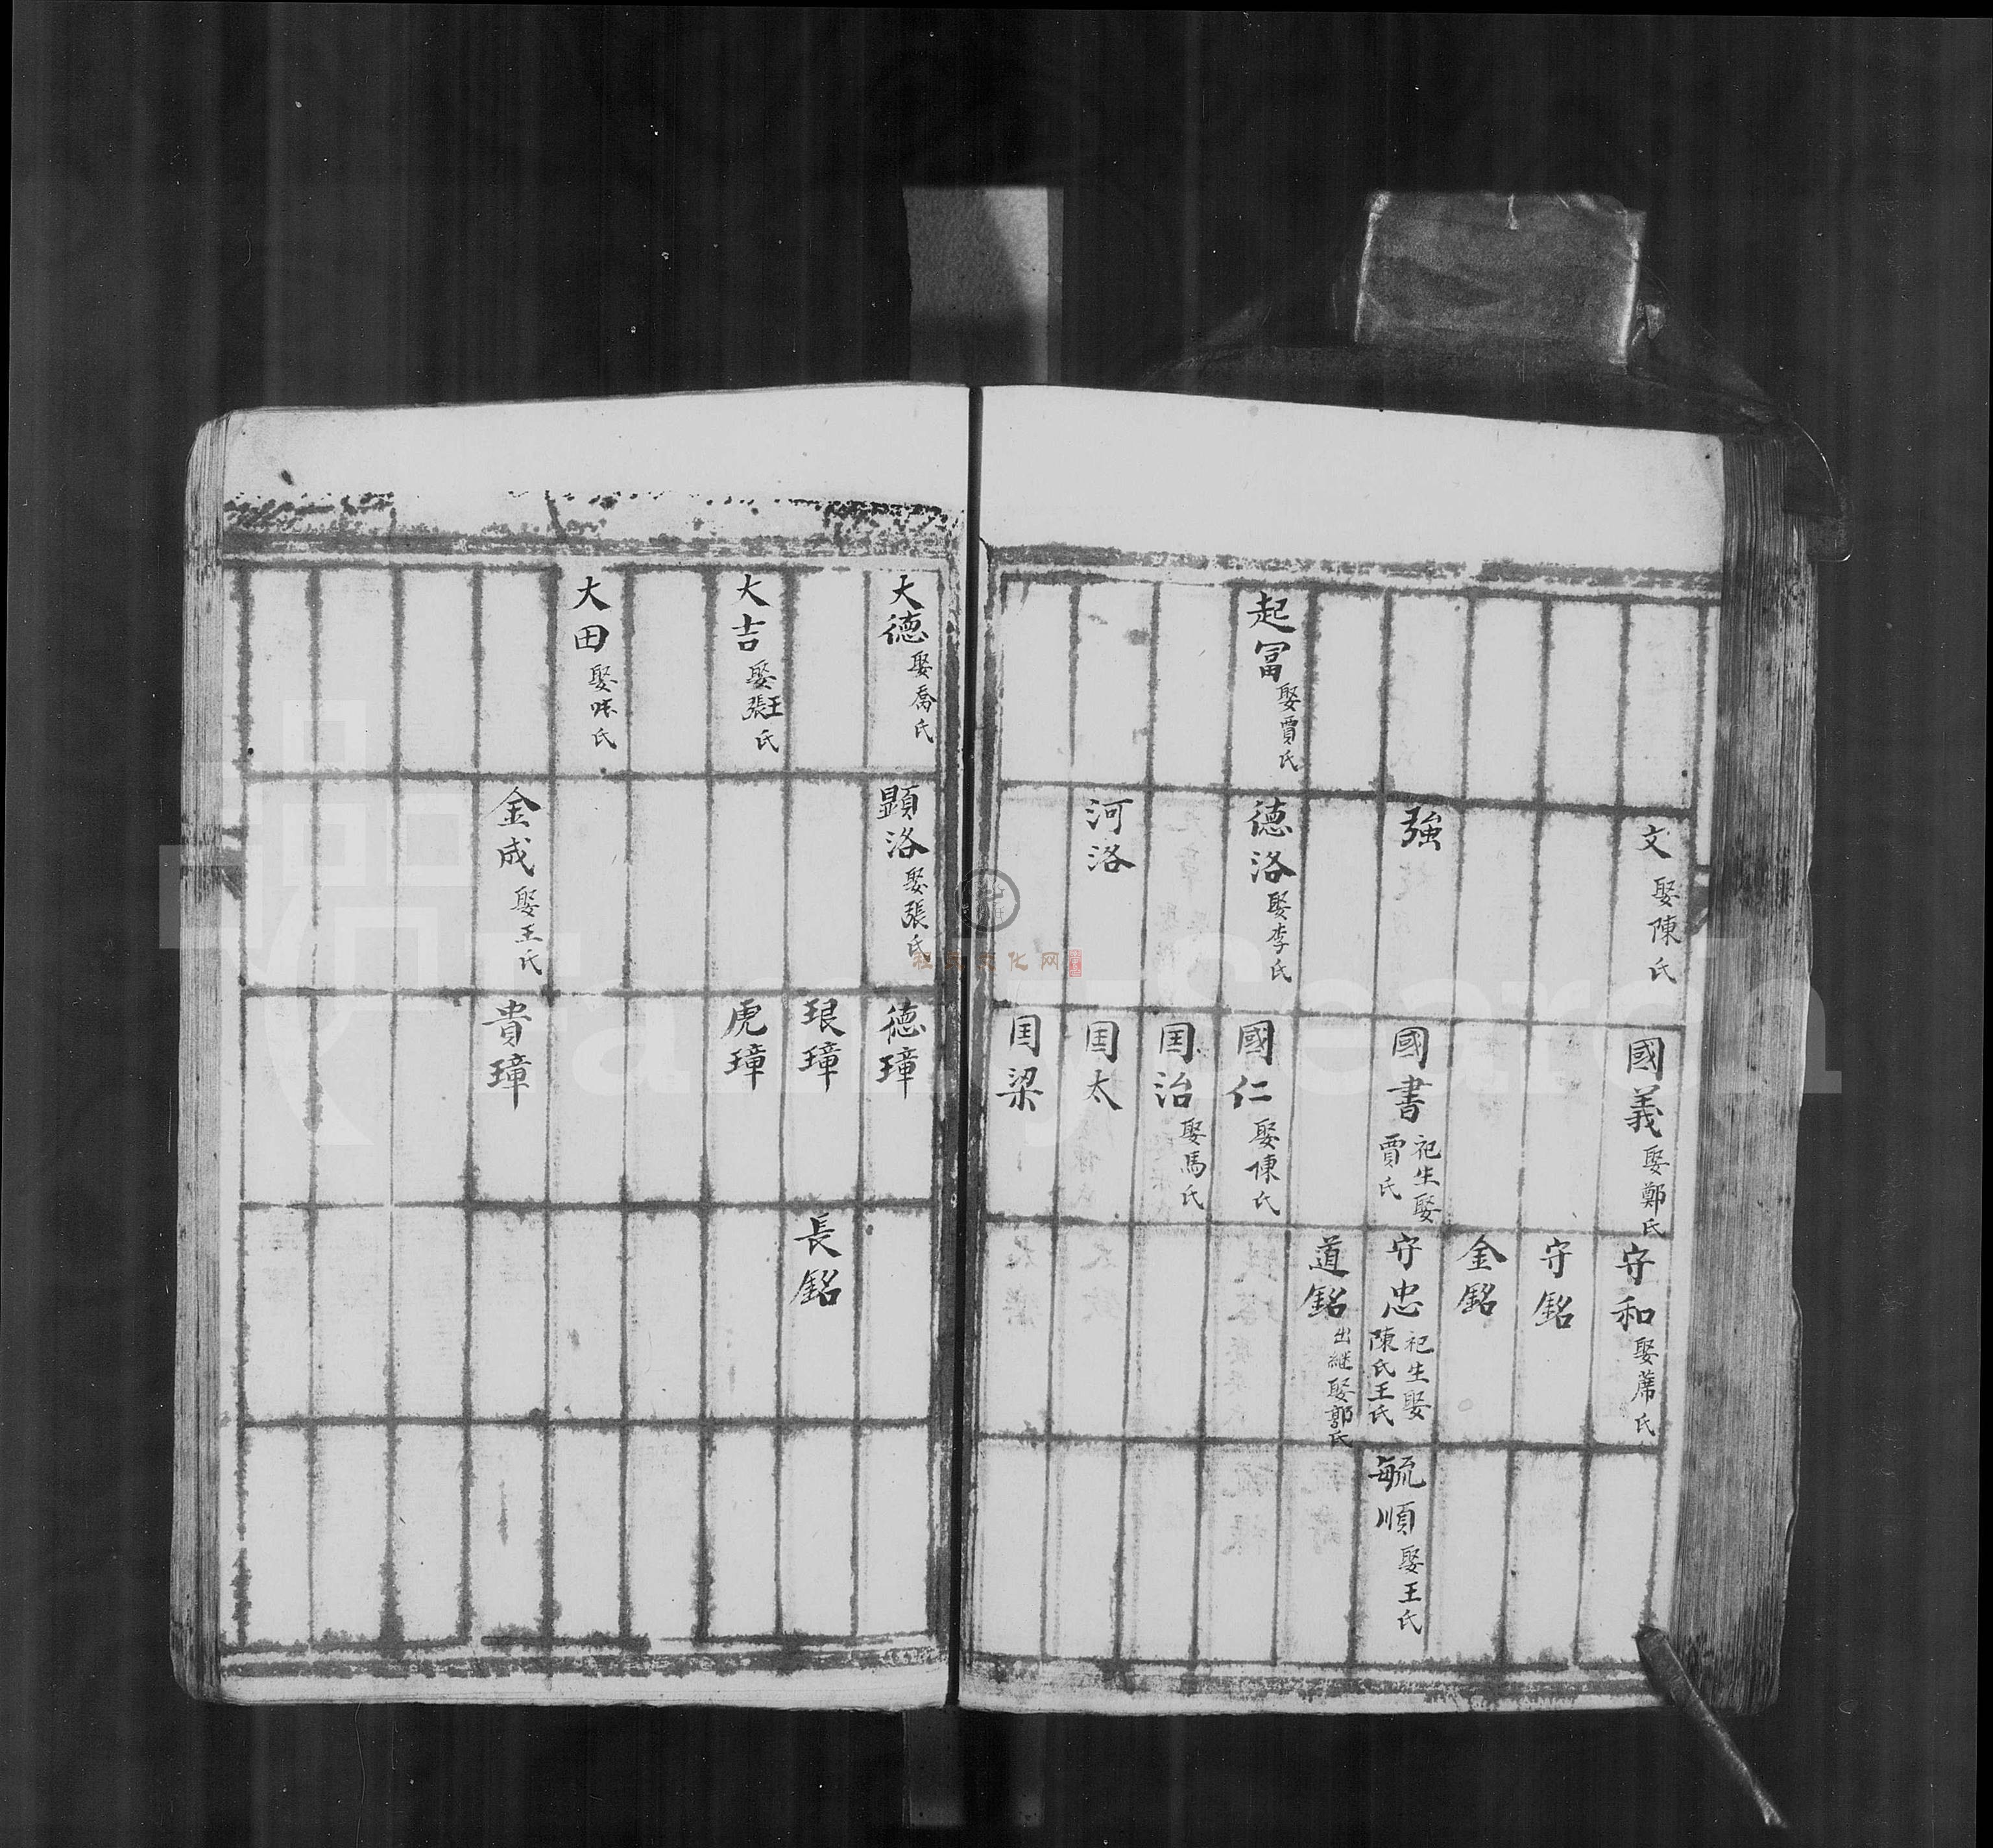 文 娶陳氏
國義 娶鄭氏
守和 娶蓆氏
守銘
金銘
強
國書 祀生娶賈氏
守忠 祀生娶陳氏王氏
毓順 娶王氏
道銘 出継娶郭氏
起冨 娶賈氏
德洛 娶李氏
國仁 娶陳氏
囯治 娶馬氏
河洛
囯太
囯梁
大德 娶喬氏
顕洛 娶張氏
德璋
珢璋
長銘
大吉 娶王張氏
虎璋
大田 娶 氏
金成 娶王氏
貴璋
FamilySearch